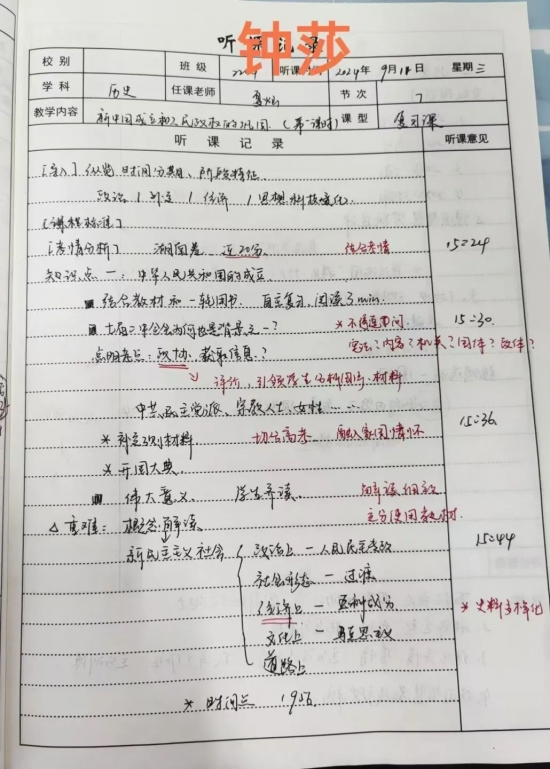 钟莎
听课记录
校别 班级 听课 2024年9月11日 星期三
学科 历史 任课老师 节次 7
教学内容 新中国成立和人民政权的巩固(第一课时) 课型 复习课
听课记录 听课意见
[导入]纵览时间分期、阶段特征
政治 外交 经济 思想科技文化
[课程标准]
[考情分析] 湖南卷 近20分 结合考情 15:24
知识点一:中华人民共和国的成立
结合教材和一轮用书 自主复习,阅读3min.
七届二中全会为何也是背景之一? *不懂追问 15:30
宪法?内容?机关?国体?政体?
点明考点:政协 获取信息?
评价,引领学生分析图片、材料
中共、民主党派、宗教人士、女性……
*补充材料 切合高考 融入家国情怀 15:36
*开国大典
伟大意义 学生齐读
充分使用教材
△重难:概念解读 15:44
新民主主义社会 政治上—人民民主专政
社会形态—过渡
经济上—五种成分 *史料多样化
文化上—马克思主义
道路上
*时间点 1956.